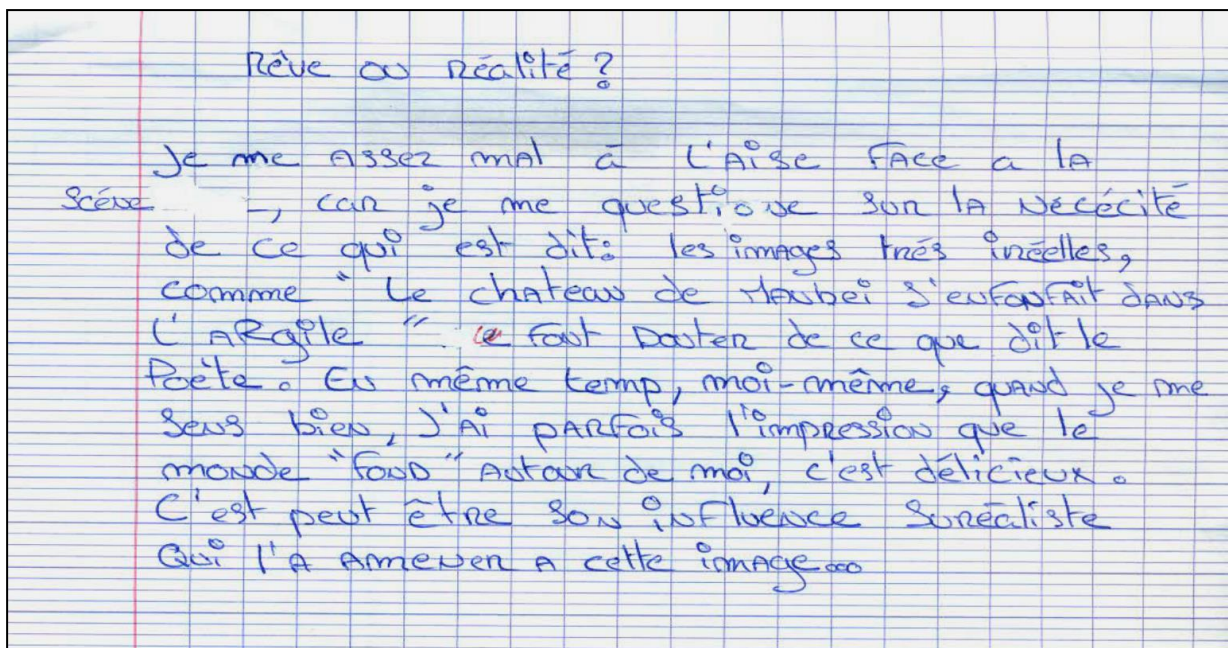 Rêve ou Réalité ?
Je me assez mal à l'aise face a la
scène -, car je me questione sur la nécécité
de ce qui est dit. les images très inéelles,
comme " Le chateau de Maubei s'enfonfait dans
l'argile " font Douter de ce que dit le
Poète. En même temp, moi-même, quand je me
sens bien, j'ai parfois l'impression que le
monde "fond" autour de moi, c'est délicieux.
C'est peut être son influence suréaliste
Qui l'a amener a cette image...